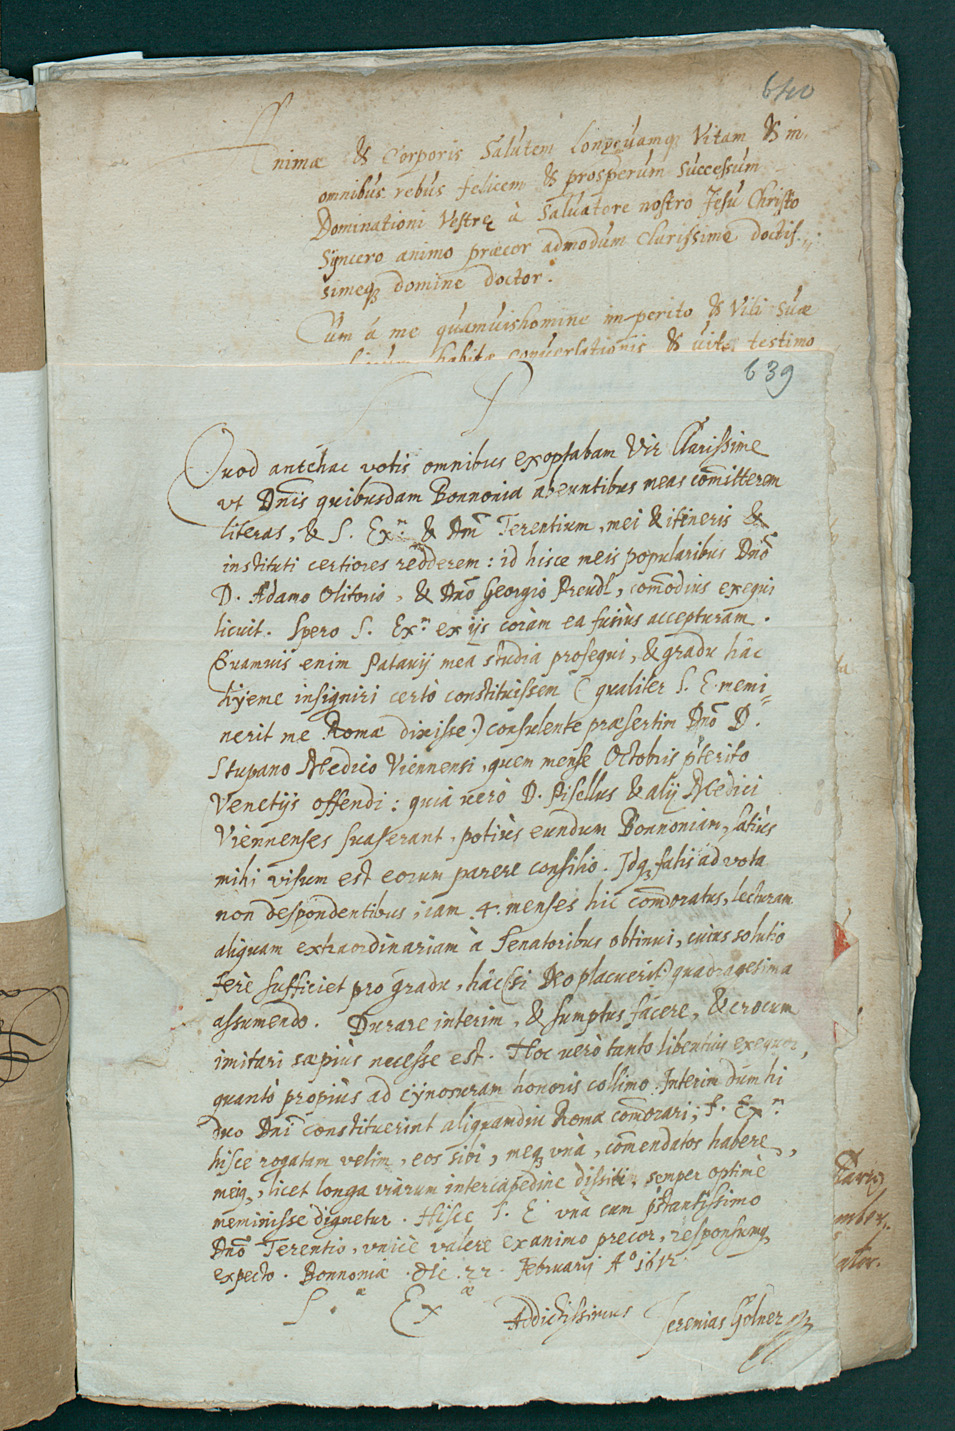 640
Animæ & Corporis Salutem longæuamq Vitam & in
omnibus rebus felicem & prosperum successum
Dominationi Vestrę à Saluatore nostro Jesu Christo
syncero animo præcor admodum clarissime doctis,,
simeq domine doctor.
Cum à me quamuis homine imperito & Vili suæ
habitæ conuersationis & uitæ testimo
639
S P
Quod antehac votis omnibus exoptabam Vir Clarissime
vt Dnis quibusdam Bonnonia abeuntibus meas comitterem
literas, & S. Ex: & Dm Terentium, mei & itineris &
instituti certiores redderem: id hisce meis popularibus Dno
D. Adamo Olitorio, & Dno Georgio Preudl, comodius exequi
licuit. Spero S. Ex ex ijs coràm ea fusius accepturam.
Quamuis enim Patauij mea studia prosequi, & gradu hâc
hyeme insigniri certò constituissem (qualiter S. E. memi=
nerit me Romæ dixisse.) consulente præsertim Dno D.
Stupano Medico Viennensi, quem mense Octobris pterito
Venetijs offendi: quià uerò D. Pisellus & alij Medici
Viennenses suaserant, potiùs eundum Bonnoniam, satius
mihi visum est eorum parere consilio. Idq fatis ad vota
non despondentibus, iam .4. menses hic comoratus, lecturam
aliquam extraordinariam à Senatoribus obtinui, cuius solutio
ferè sufficiet pro gradu, hâc (si Deo placuerit) quadragesima
assumendo. Durare interim, & sumptus facere, & crocum
imitari sæpiùs necesse est. Hoc uerò tanto libentius exequor,
quantò propiùs ad cynosuram honoris collimo. Interim dum hi
duo Dni constituerint aliquandiu Romæ comorari; S. Ex:
hisce rogatam velim, eos sibi, meq unà, comendatos habere,
meiq, licet longa viarum intercapedine dissiti, semper optimè
meminisse dignetur. Hisce S. E vna cum pstantissimo
Dno Terentio, vnicè valere ex animo precor, responsumq
expecto. Bonnoniæ. die .22. Februarij Ao 1612
S. æ Ex æ Addictissimus Jeremias Golner